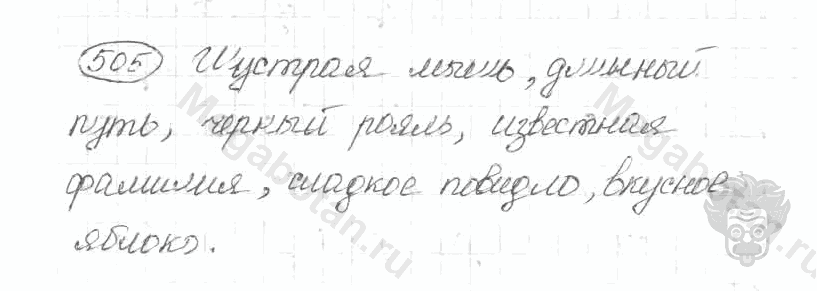 505 Шустрая мышь, длинный
путь, черный рояль, известная
фамилия, сладкое повидло, вкусное
яблоко.
Megabotan.ru
Megabotan.ru
Megabotan.ru